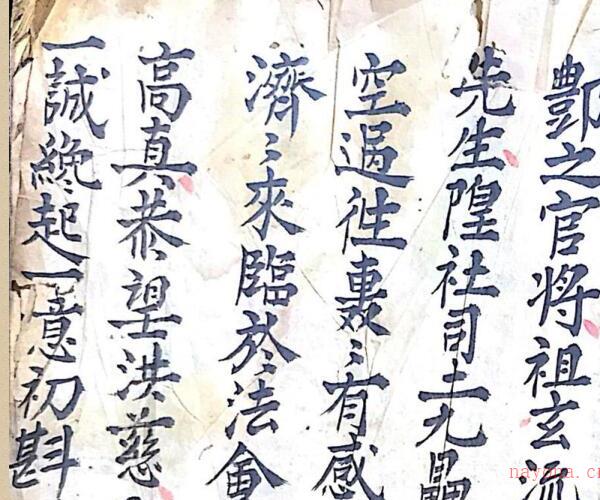 酆之官将祖玄流
先生隍社司土九晶
空過往轟〻有感
濟〻來臨於法會
高真恭望洪慈
一誠纔起一意初斟
nayona.cn